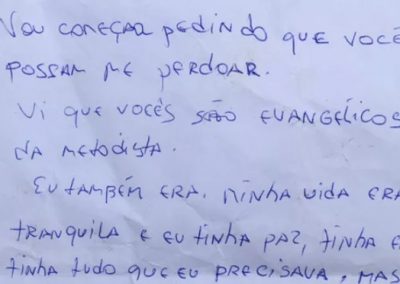 VOU COMEÇAR PEDINDO QUE VOCÊ
POSSAM ME PERDOAR.
VI QUE VOCÊS SÃO EVANGÉLICOS
DA METODISTA.
EU TAMBÉM ERA. MINHA VIDA ERA
TRANQUILA E EU TINHA PAZ, TINHA
TINHA TUDO QUE EU PRECISAVA, MAS